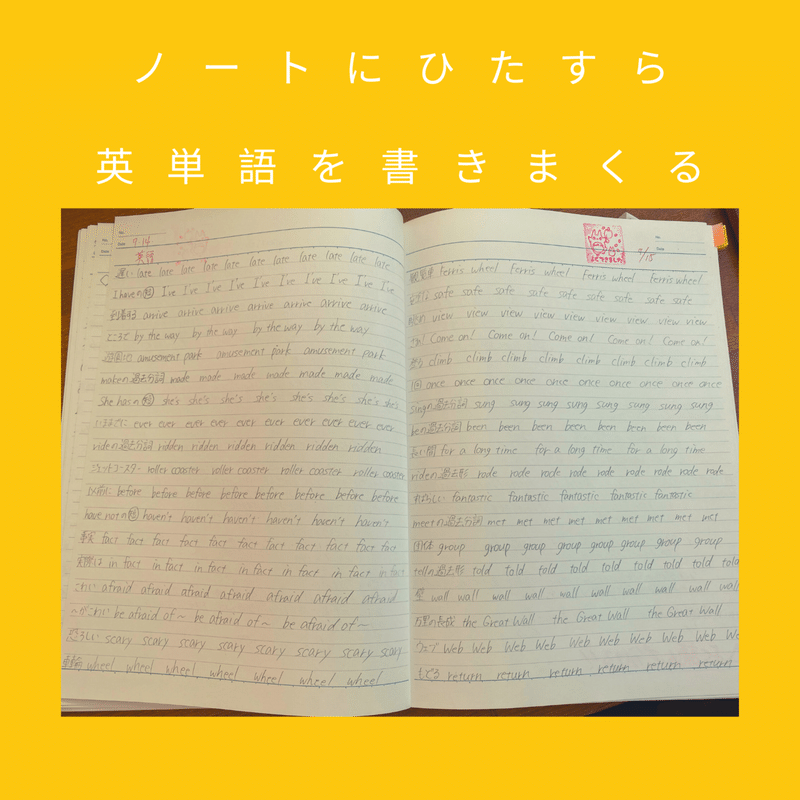 ノートにひたすら
英単語を書きまくる
No.
Date 9.14
英語
遅い late late late late late late late late late late late
I haveの短 I've I've I've I've I've I've I've I've I've
到着する arrive arrive arrive arrive arrive arrive arrive
ところで by the way by the way by the way by the way
遊園地 amusement park amusement park amusement park
makeの過去分詞 made made made made made made made
She hasの短 she's she's she's she's she's she's she's she's
いままでに ever ever ever ever ever ever ever ever ever ever
rideの過去分詞 ridden ridden ridden ridden ridden ridden
ジェットコースター roller coaster roller coaster roller coaster roller coaster
以前に before before before before before before before before
have notの短 haven't haven't haven't haven't haven't haven't
事実 fact fact fact fact fact fact fact fact fact fact fact
実際は in fact in fact in fact in fact in fact in fact in fact
こわい afraid afraid afraid afraid afraid afraid afraid
〜がこわい be afraid of〜 be afraid of〜 be afraid of〜
恐ろしい scary scary scary scary scary scary scary scary
車輪 wheel wheel wheel wheel wheel wheel wheel
No.
Date 9/15
観覧車 Ferris wheel Ferris wheel Ferris wheel Ferris wheel
safe safe safe safe safe safe safe safe
view view view view view view view view view
Come on! Come on! Come on! Come on! Come on!
登る climb climb climb climb climb climb climb
1回 once once once once once once once once once
singの過去分詞 sung sung sung sung sung sung sung sung
beの過去分詞 been been been been been been been been
長い間 for a long time for a long time for a long time
rideの過去形 rode rode rode rode rode rode rode rode
すばらしい fantastic fantastic fantastic fantastic fantastic
meetの過去分詞 met met met met met met met met
団体 group group group group group group group
tellの過去形 told told told told told told told told
壁 wall wall wall wall wall wall wall wall wall
万里の長城 the Great Wall the Great Wall the Great Wall
ウェブ Web Web Web Web Web Web Web Web Web
もどる return return return return return return